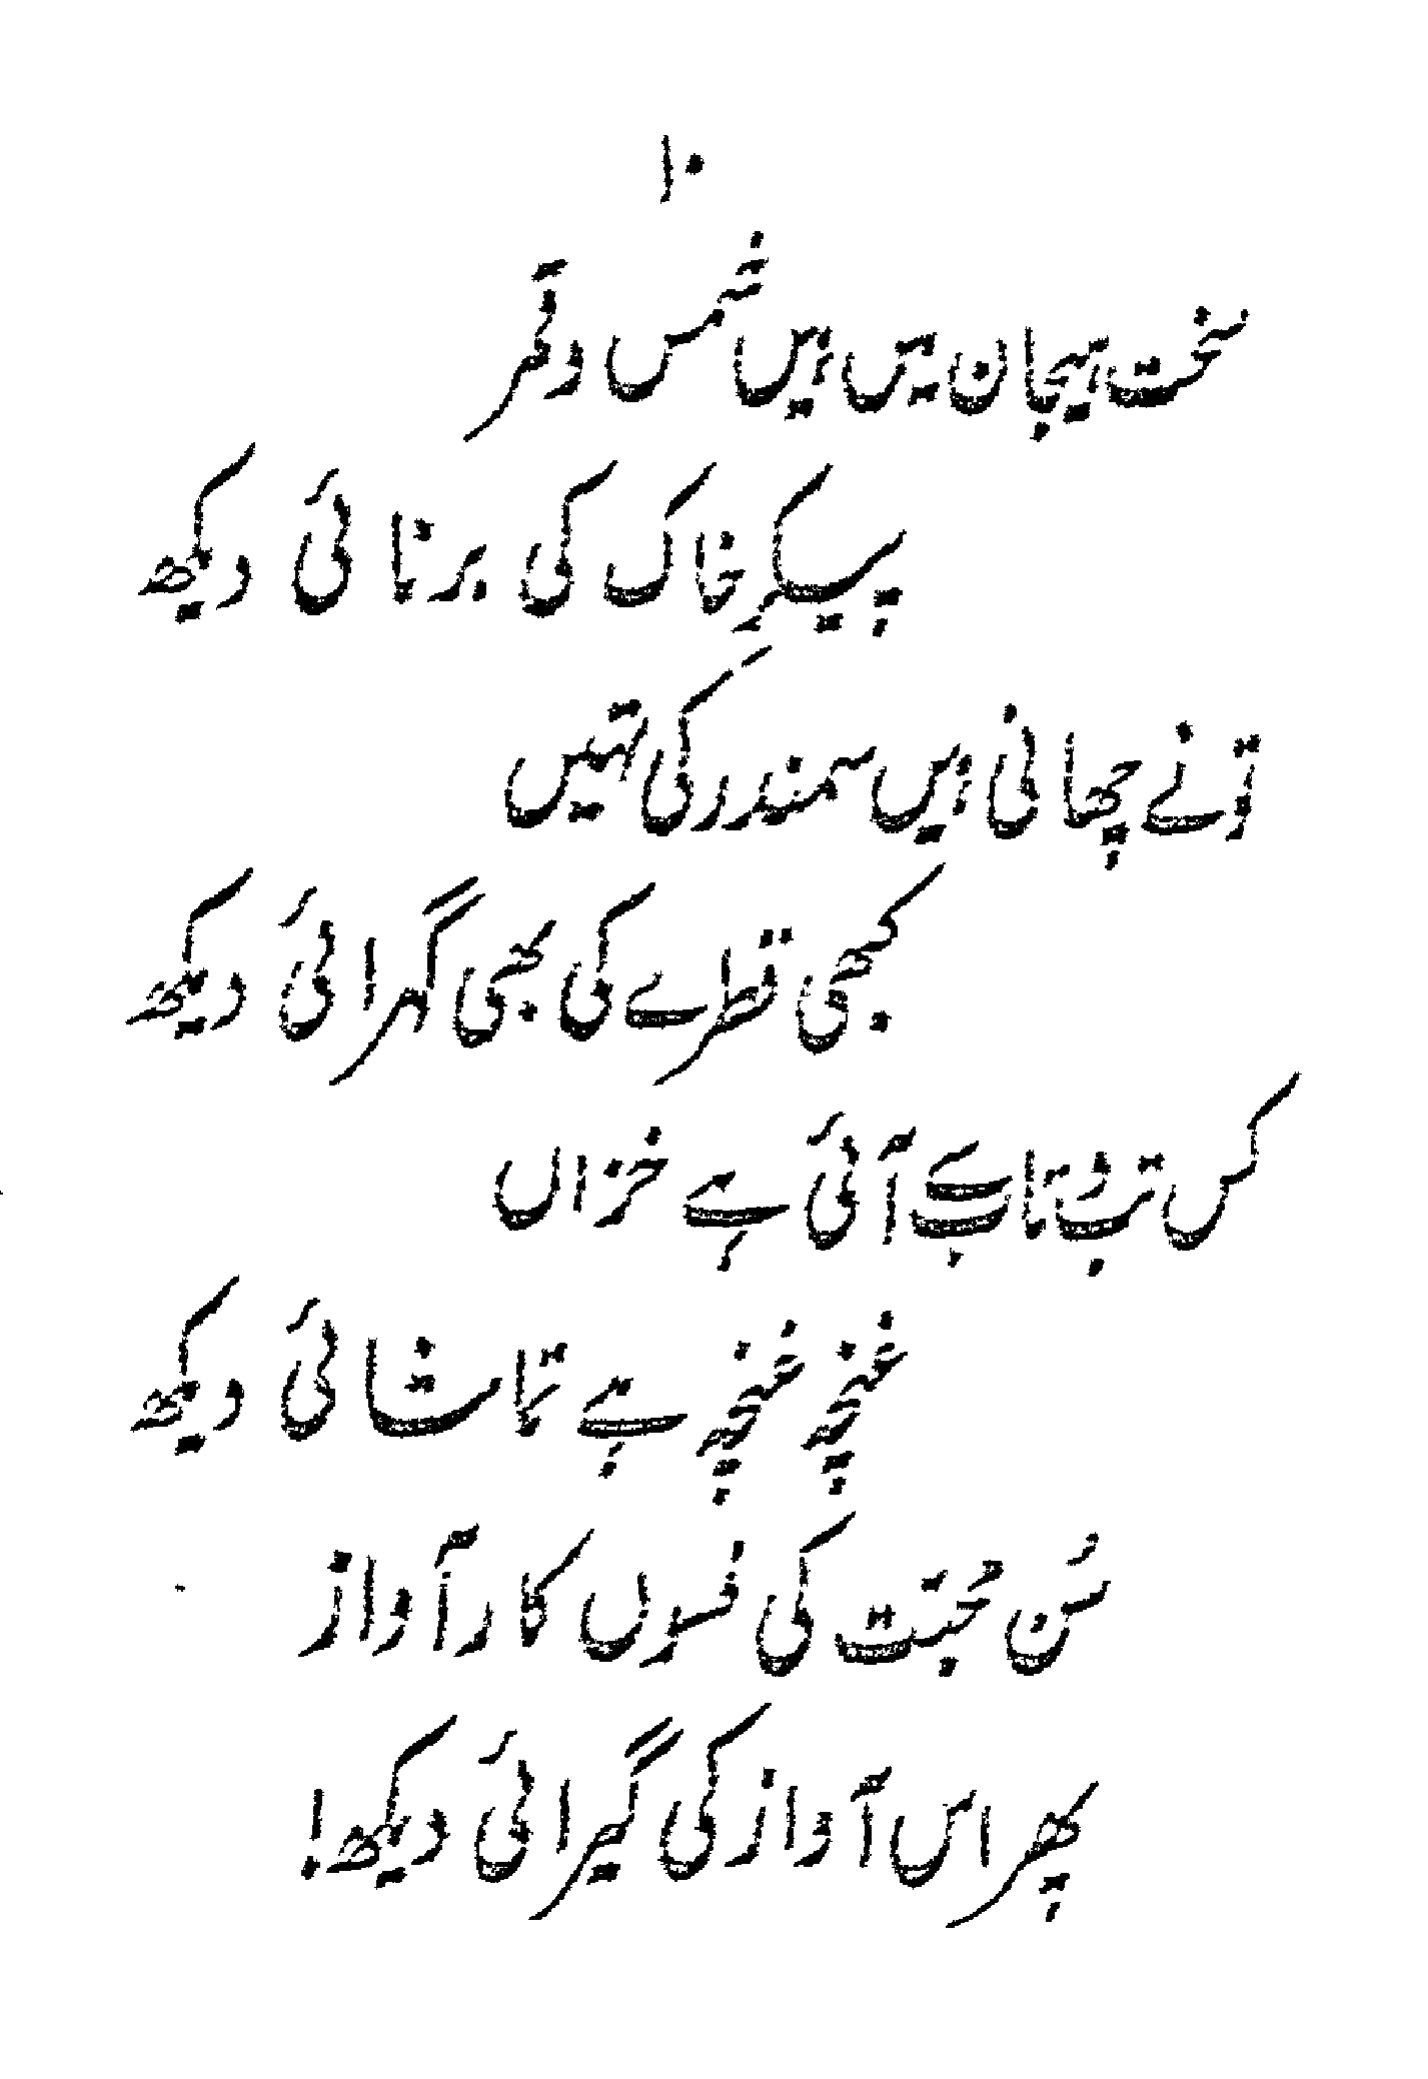 ۱۰
سخت ہیجان میں ہیں شمس و قمر
پیکرِ خاک کی برنائی دیکھ
تو نے چھانی ہیں سمندر کی تہیں
کبھی قطرے کی بھی گہرائی دیکھ
کس تب و تاب سے آئی ہے خزاں
غنچہ غنچہ ہے تماشائی دیکھ
سُن محبّت کی فسوں کار آواز
پھر اس آواز کی گیرائی دیکھ!